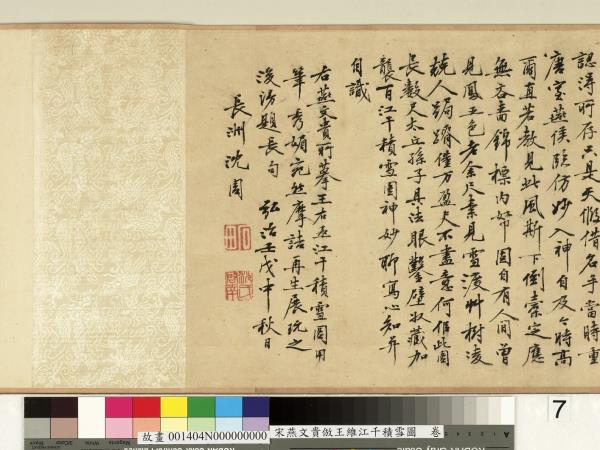 認得所存只是天慳借名手當時重
唐室燕侯臨仿妙入神自及今時高
爾直若教見此風斯下倒橐定應
無吝嗇錦標內帑固自有人間曾
見鳳五色老余尺素見雪渡艸樹淩
兢人蹋躋僅方盈尺不盡意何但此圖
長數尺太丘孫子具法眼鑿壁收藏加
襲百江干積雪圖神妙聊寫心知弁
自識
右燕文貴所摹王右丞江干積雪圖用
筆秀媚宛然摩詰再生展玩之
後漫題長句 弘治壬戌中秋日
長洲沈周
7
故畫 001404N000000000 宋燕文貴倣王維江千積雪圖 卷